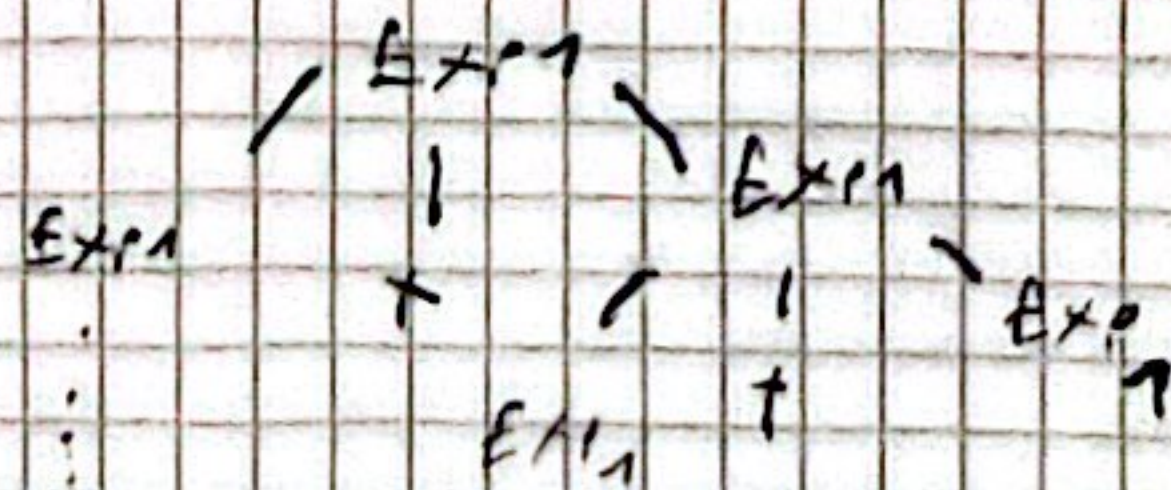 Exp1
Exp1
Exp1
+
Exp
1
+
Exp1